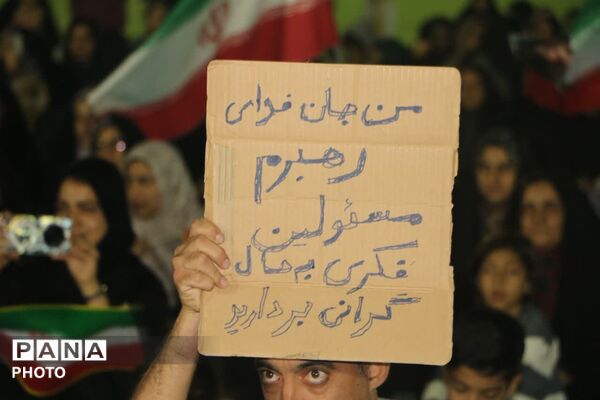 من جان فدای
رهبرم
مسئولین
فکری به حال
گرانی بردارید
PANA
PHOTO